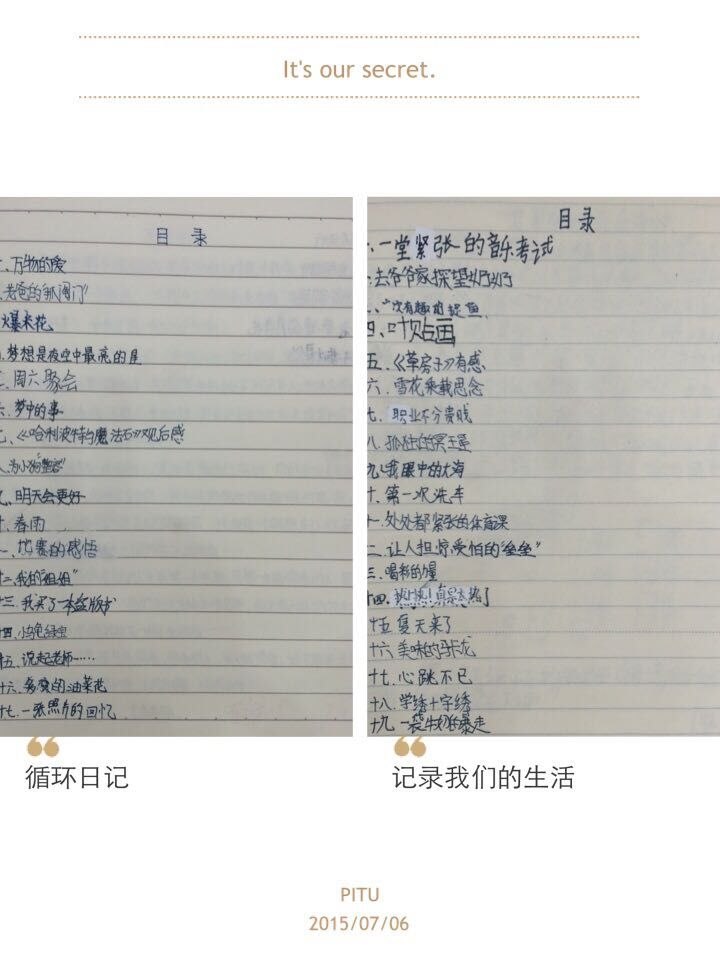 It's our secret.
目 录
一、万物的爱
老爸的"抓阄门"
爆米花
、梦想是夜空中最亮的星
、周六聚会
六、梦中的事
七、《哈利波特与魔法石》观后感
八、为小狗"整容"
九、明天会更好
十、春雨
一、故事的感悟
十二、我的"姐姐"
十三、我买了一本盗版书
十四、小乌龟绿虫
十五、说起老师……
十六、多变的油菜花
十七、一张照片的回忆
循环日记
目录
、一堂紧张的音乐考试
、去爷爷家探望奶奶
、一次有趣的捉鱼
四、叶贴画
五、《草房子》有感
六、雪花乘载思念
七、职业不分贵贱
八、孤独的冥王星
九、我眼中的大海
十、第一次洗车
十一、处处都紧张的体育课
二、让人担惊受怕的"垒垒"
三、唱称的星
十四、热！热！真是太热了
十五 夏天来了
十六、美味的马卡龙
十七、心跳不已
十八、学绣十字绣
十九、一袋牛奶的暴走
记录我们的生活
PITU
2015/07/06